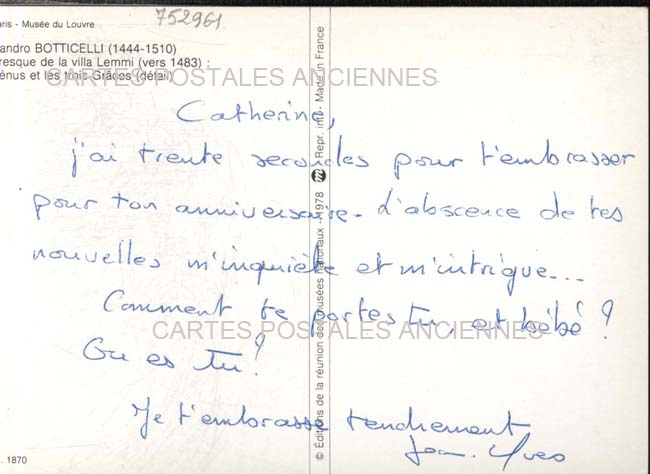 752961
ris - Musée du Louvre
andro BOTTICELLI (1444-1510)
resque de la villa Lemmi (vers 1483) :
énus et les trois Grâces (détail)
CARTES POSTALES ANCIENNES
Catherine,
j'ai trente secondes pour t'embrasser
pour ton anniversaire. L'abscence de tes
nouvelles m'inquiète et m'intrigue...
Comment te portes tu, et bébé ?
CARTES POSTALES ANCIENNES
Où es tu ?
Je t'embrasse tendrement
Jean-Yves
. 1870
© Editions de la réunion des musées nationaux - 1978 Repr. int. - Made in France